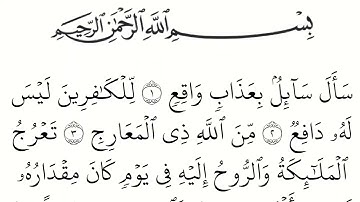 بِسْمِ اللَّهِ الرَّحْمَٰنِ الرَّحِيمِ
سَأَلَ سَآئِلٌۢ بِعَذَابٍ وَاقِعٍ ۝١ لِّلْكَـٰفِرِينَ لَيْسَ
لَهُۥ دَافِعٌ ۝٢ مِّنَ ٱللَّهِ ذِى ٱلْمَعَارِجِ ۝٣ تَعْرُجُ
ٱلْمَلَـٰٓئِكَةُ وَٱلرُّوحُ إِلَيْهِ فِى يَوْمٍ كَانَ مِقْدَارُهُۥ